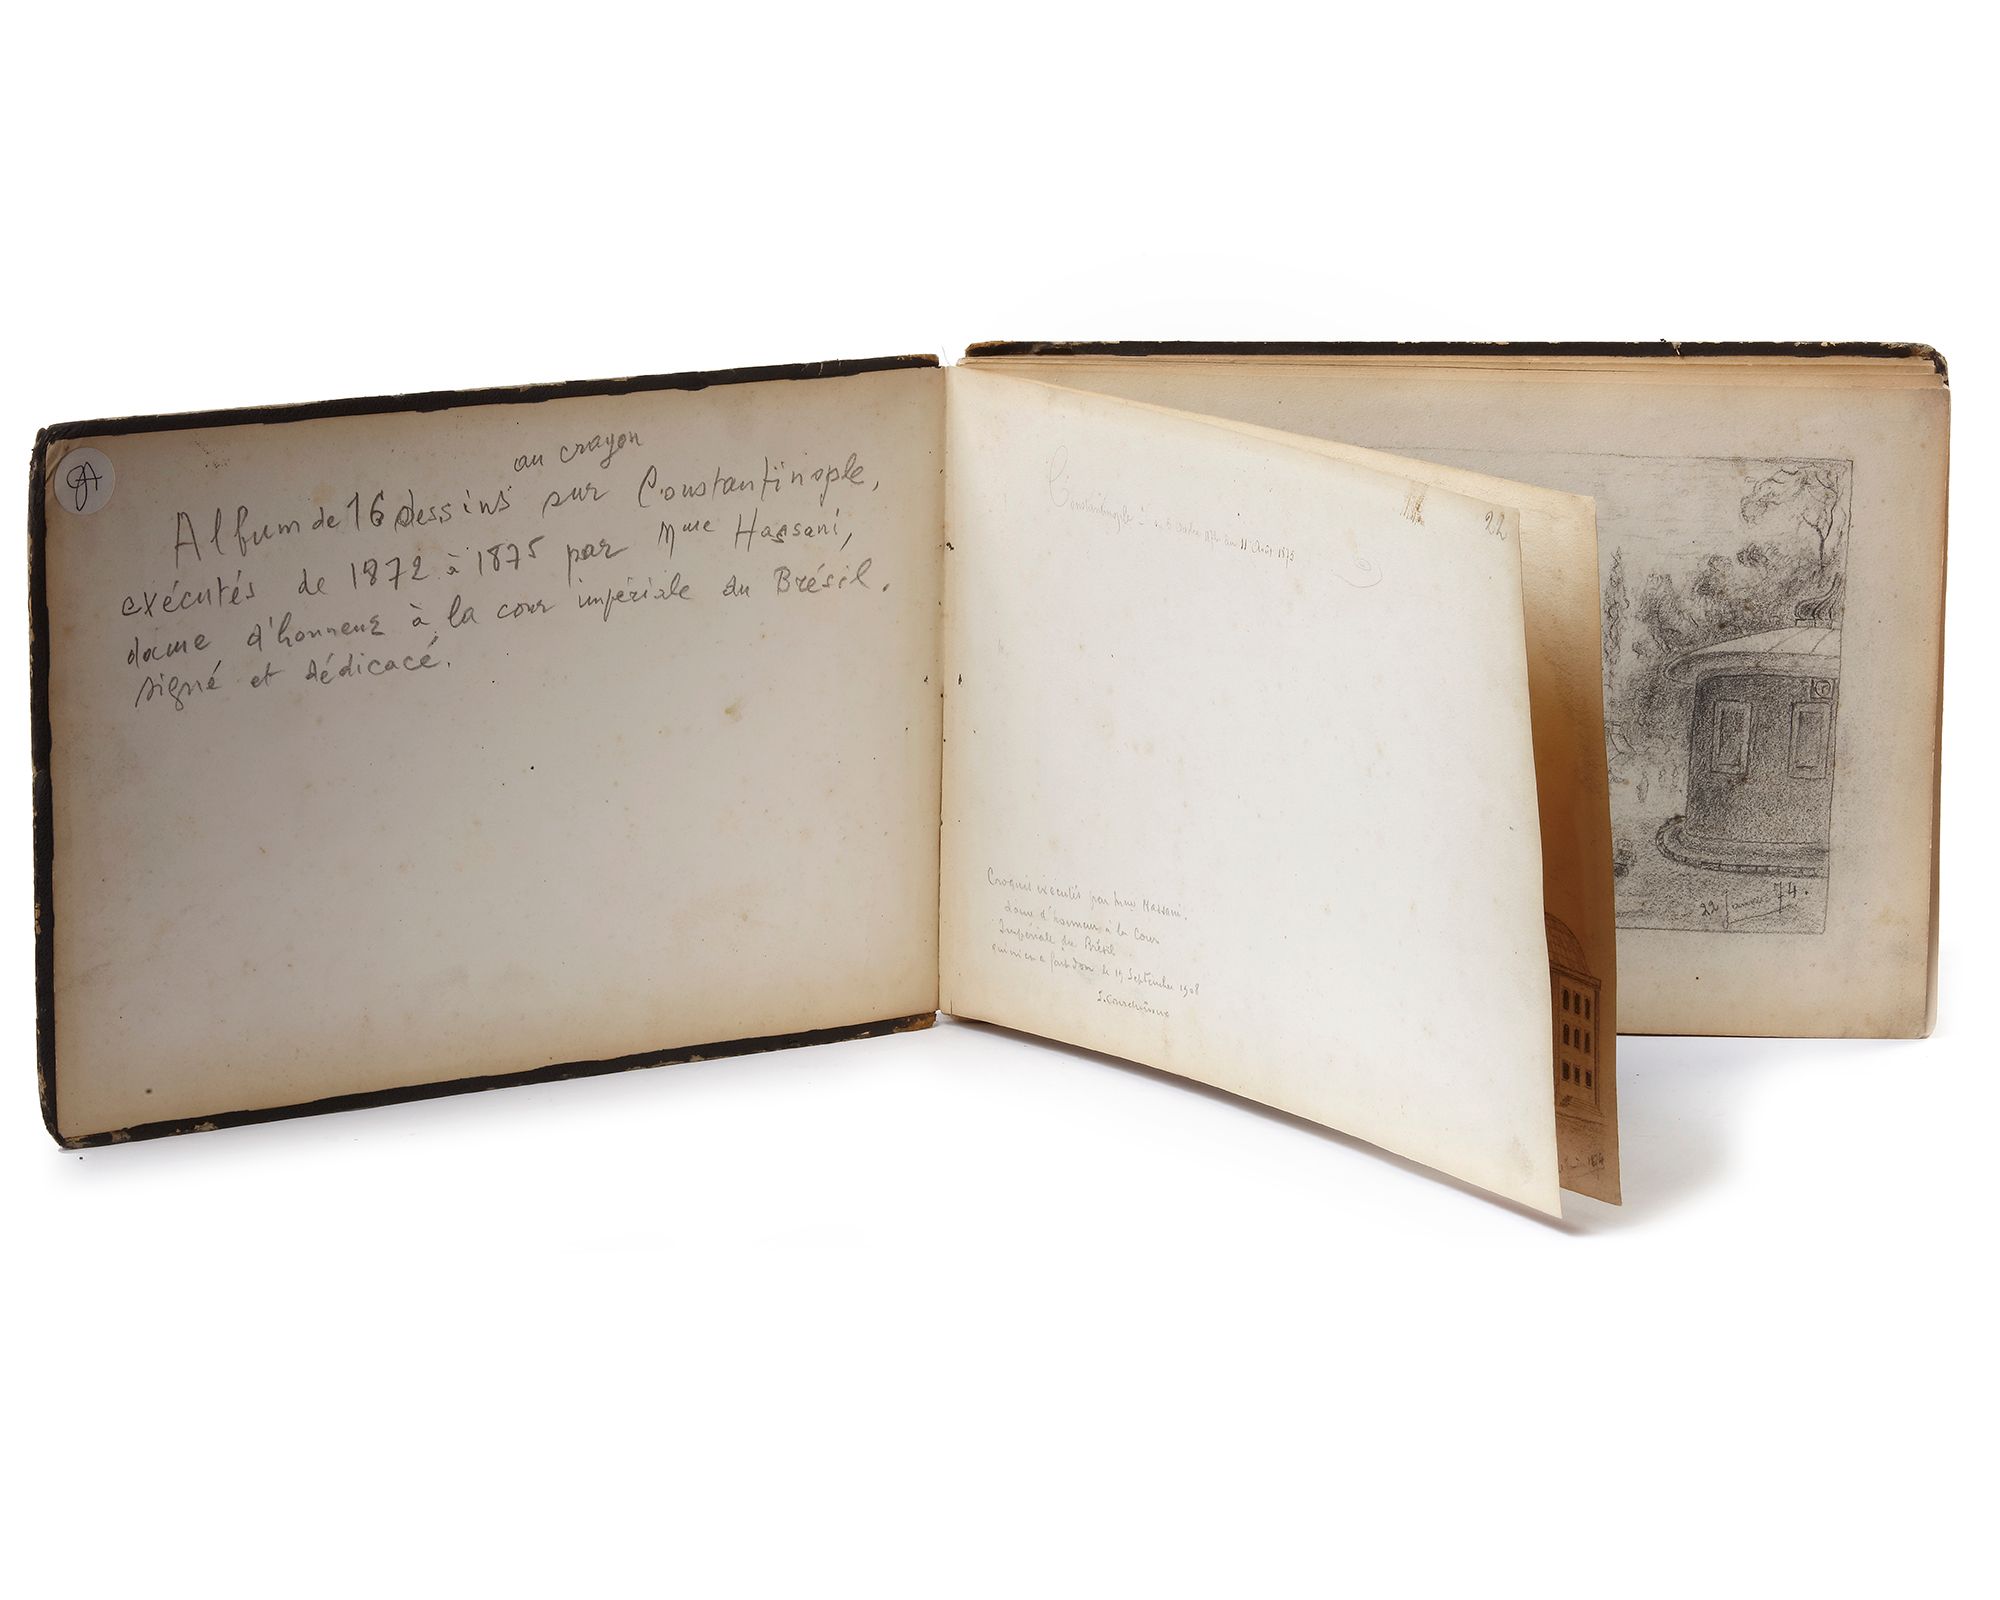 au crayon
Album de 16 dessins sur Constantinople,
exécutés de 1872 à 1875 par Mme Hassani,
dame d'honneur à la cour impériale du Brésil.
signé et dédicacé.
22
Constantinople 11 Août 1875
Croquis exécutés par Mme Hassani.
dame d'honneur à la Cour
Impériale du Brésil
qui m'en a fait don le 19 Septembre 1908
22 Janvier 74.